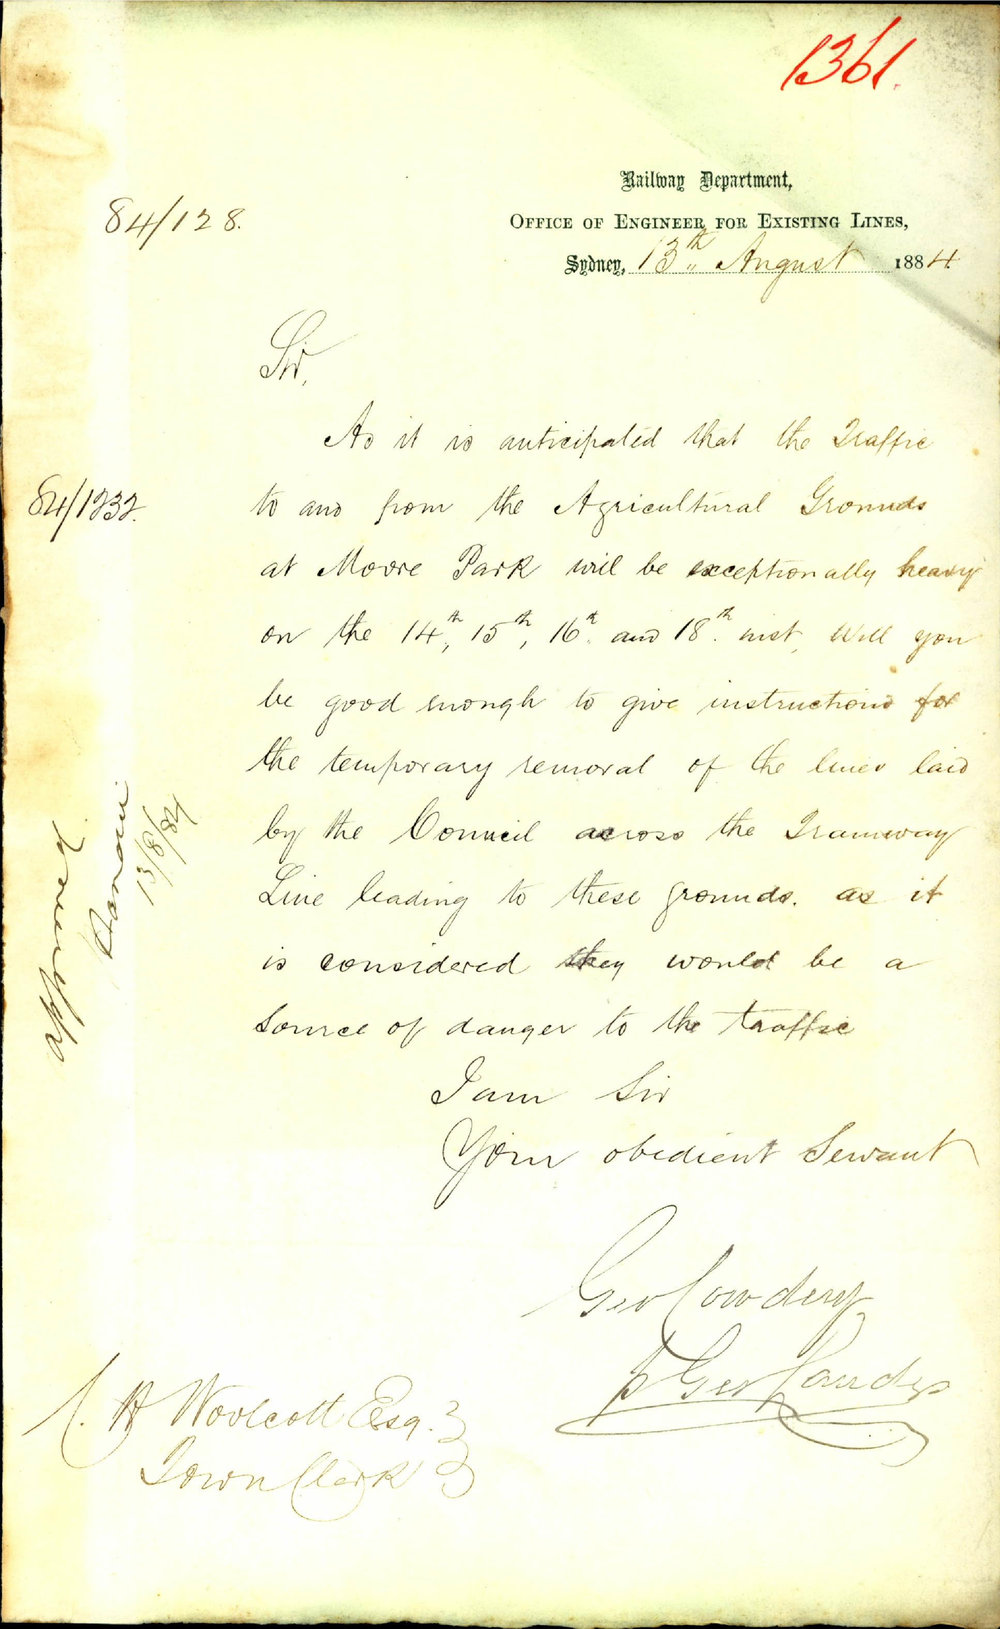 1361.
Railway Department,
84/128.
OFFICE OF ENGINEER FOR EXISTING LINES,
Sydney, 13th August 1884
Sir,
As it is anticipated that the Traffic
84/1232.
to and from the Agricultural Grounds
at Moore Park will be exceptionally heavy
on the 14th, 15th, 16th and 18th inst, Will you
be good enough to give instructions for
the temporary removal of the lines laid
by the Council across the Tramway
Line leading to these grounds. as it
is considered they would be a
source of danger to the traffic
I am Sir
Your obedient Servant
Geo Cowdery
p Geo
C. H Woolcott Esq.
Town Clerk
13/8/84